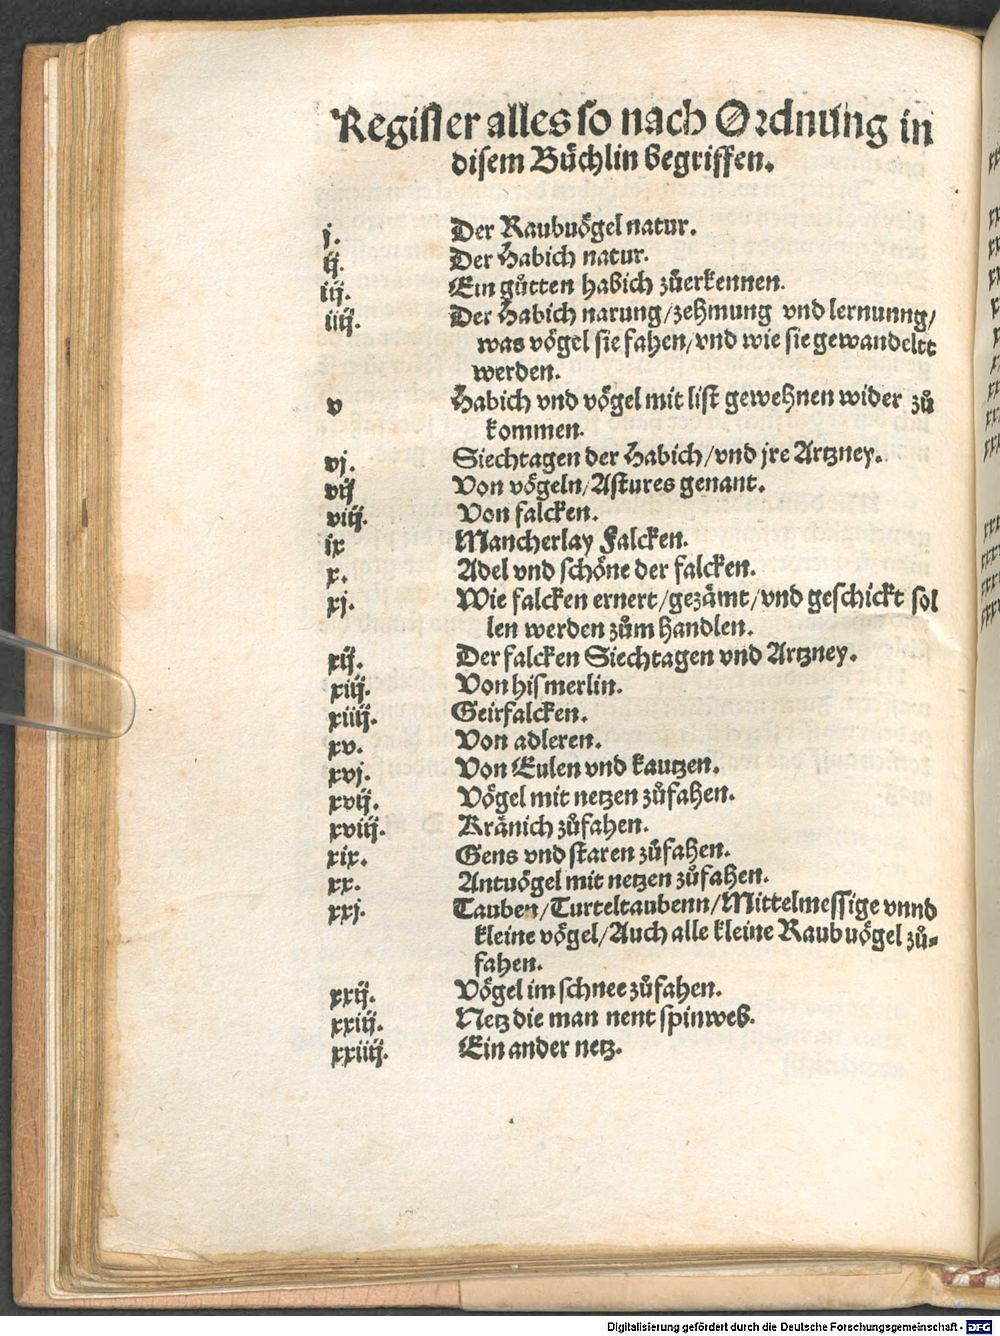 Register alles so nach Ordnung in
disem Bůchlin begriffen.
j. Der Raubuögel natur.
ij. Der Habich natur.
iij. Ein gůtten habich zůerkennen.
iiij. Der Habich narung/zehmung vnd lernunng/
was vögel sie fahen/vnd wie sie gewandeltt
werden.
v Habich vnd vögel mit list gewehnen wider zů
kommen.
vj. Siechtagen der Habich/vnd jre Artzney.
vij Von vögeln/Astures genant.
viij. Von falcken.
ix Mancherlay Falcken.
x. Adel vnd schöne der falcken.
xj. Wie falcken ernert/gezämt/vnd geschickt sol
len werden zům handlen.
xij. Der falcken Siechtagen vnd Artzney.
xiij. Von hismerlin.
xiiij. Geirfalcken.
xv. Von adleren.
xvj. Von Eulen vnd kautzen.
xvij. Vögel mit netzen zůfahen.
xviij. Kränich zůfahen.
xix. Gens vnd staren zůfahen.
xx. Antuögel mit netzen zůfahen.
xxj. Tauben/Turteltaubenn/Mittelmessige vnnd
kleine vögel/Auch alle kleine Raubuögel zů-
fahen.
xxij. Vögel im schnee zůfahen.
xxiij. Netz die man nent spinweb.
xxiiij. Ein ander netz.
Digitalisierung gefördert durch die Deutsche Forschungsgemeinschaft - DFG